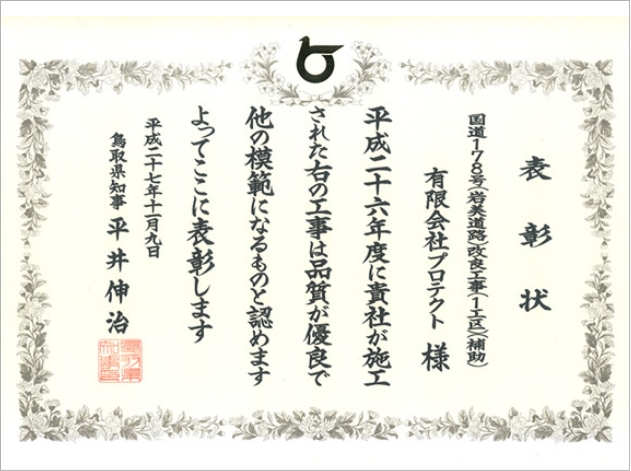 表彰状
国道178号(岩美道路)改良工事(1工区)(補助)
有限会社プロテクト 様
平成二十六年度に貴社が施工
された右の工事は品質が優良で
他の模範になるものと認めます
よってここに表彰します
平成二十七年十一月九日
鳥取県知事 平井伸治